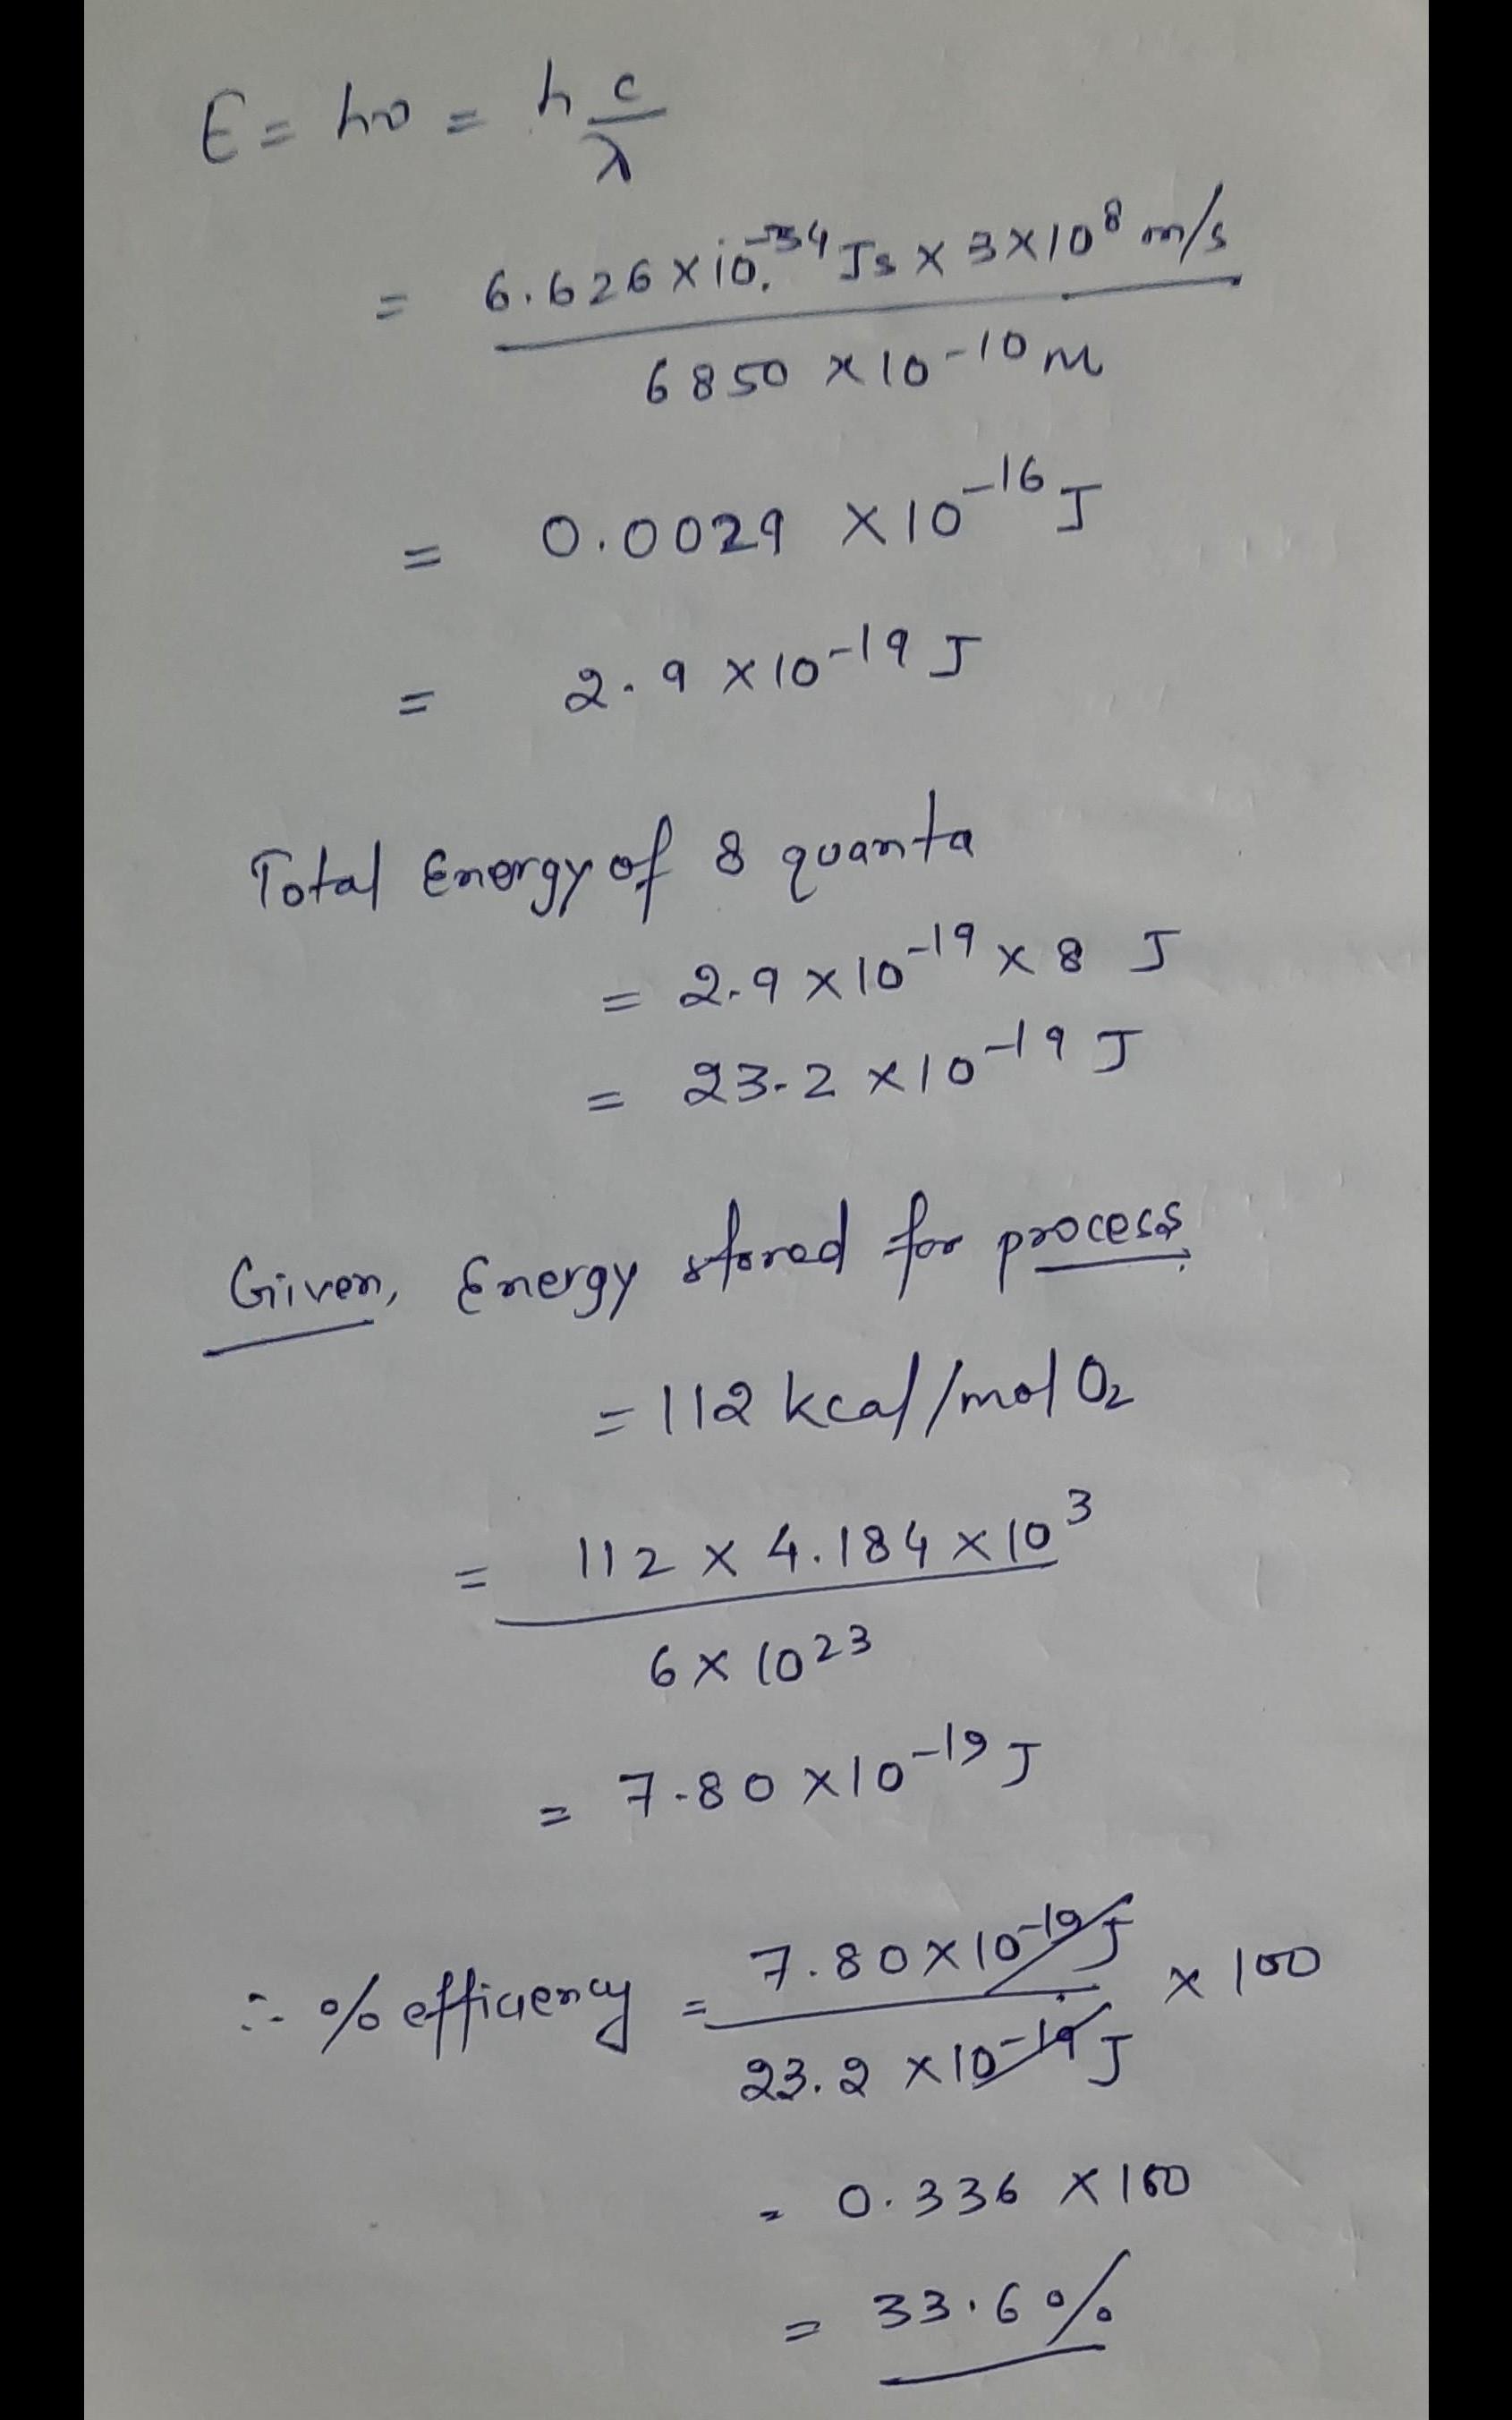 E = hν = h c/λ
= 6.626 × 10^-34 Js × 3×10^8 m/s / 6850 × 10^-10 m
= 0.0029 × 10^-16 J
= 2.9 × 10^-19 J
Total Energy of 8 quanta
= 2.9 × 10^-19 × 8 J
= 23.2 × 10^-19 J
Given, Energy stored for process
= 112 kcal/mol O₂
= 112 × 4.184 × 10^3 / 6 × 10^23
= 7.80 × 10^-19 J
∴ % efficiency = 7.80 × 10^-19 J / 23.2 × 10^-19 J × 100
= 0.336 × 100
= 33.6%